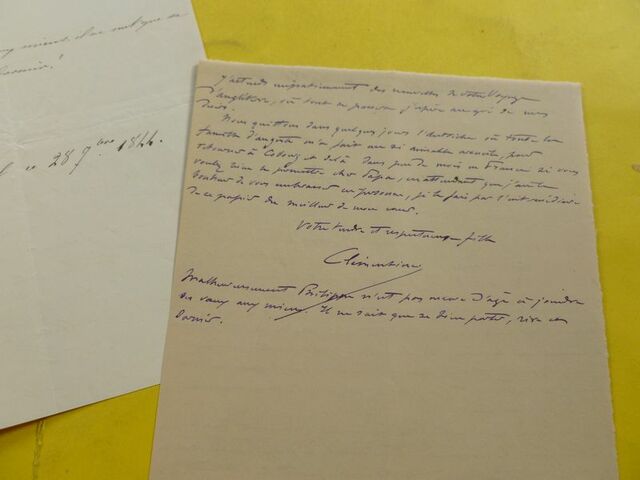 mieux! il ne sait que se
dormir!
ce 28 7bre 1844.
J'attends impatiemment des nouvelles de votre Voyage
d'angleterre, où tout se passera j'espère au gré de mes
désirs.
Nous quittons dans quelques jours l'Autriche où toute la
famille d'Auguste m'a fait un si aimable accueil, pour
retourner à Cobourg et de là dans peu de mois en France si vous
voulez bien le permettre cher Papa, en attendant que j'aie le
bonheur de vous embrasser en personne, je le fais par l'intermédiaire
de ce papier du meilleur de mon cœur.
Votre tendre et respectueuse fille
Clémentine
Malheureusement Philippe n'est pas encore d'âge à joindre
ses vœux aux miens. Il ne sait que se bien porter, rire et
dormir.